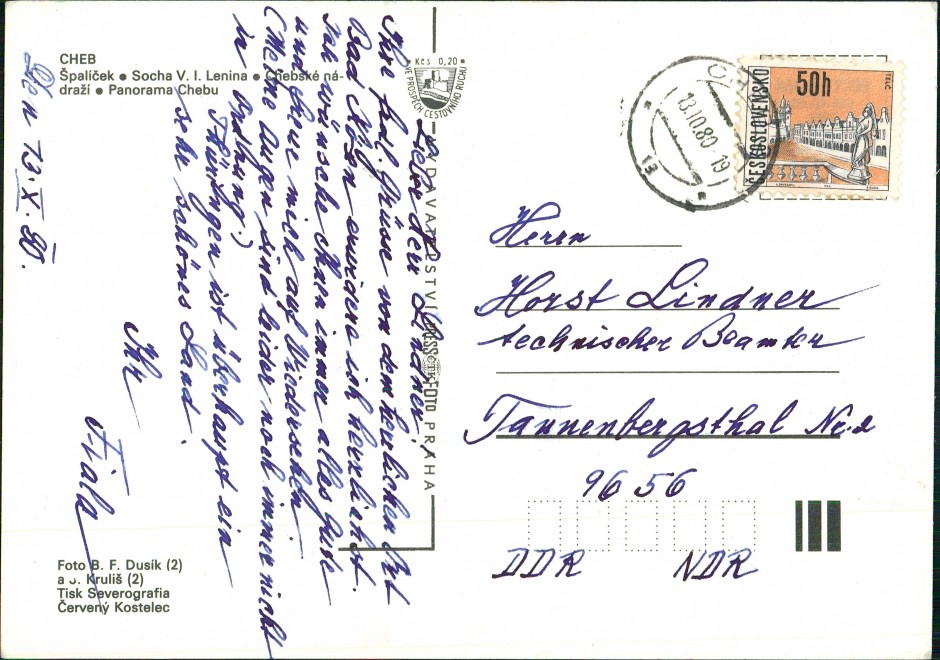 CHEB
Špalíček • Socha V. I. Lenina • Chebské ná-
draží • Panorama Chebu
Kčs 0,20
VE PROSPĚCH CESTOVNÍHO RUCHU
VYDAVATELSTVÍ PRESSFOTO PRAHA
ČTK
Den 13. X. 80.
Lieber Herr Lindner!
Ihre frdl. Grüsse von dem herrlichen Ort
Bad erwidere ich herzlichst.
Ich wünsche Ihnen immer alles Gute
und freue mich auf Wiedersehen.
(Meine Augen sind leider noch immer nicht
in Ordnung.)
Thüringen ist überhaupt ein
sehr schönes Land.
Ihr
Fiala
Foto B. F. Dusík (2)
a J. Kruliš (2)
Tisk Severografia
Červený Kostelec
13.10.80-19
ČESKOSLOVENSKO
50h
TELČ
Herrn
Horst Lindner
technischer Beamter
Tannenbergsthal Nr. 2
9656
DDR NDR